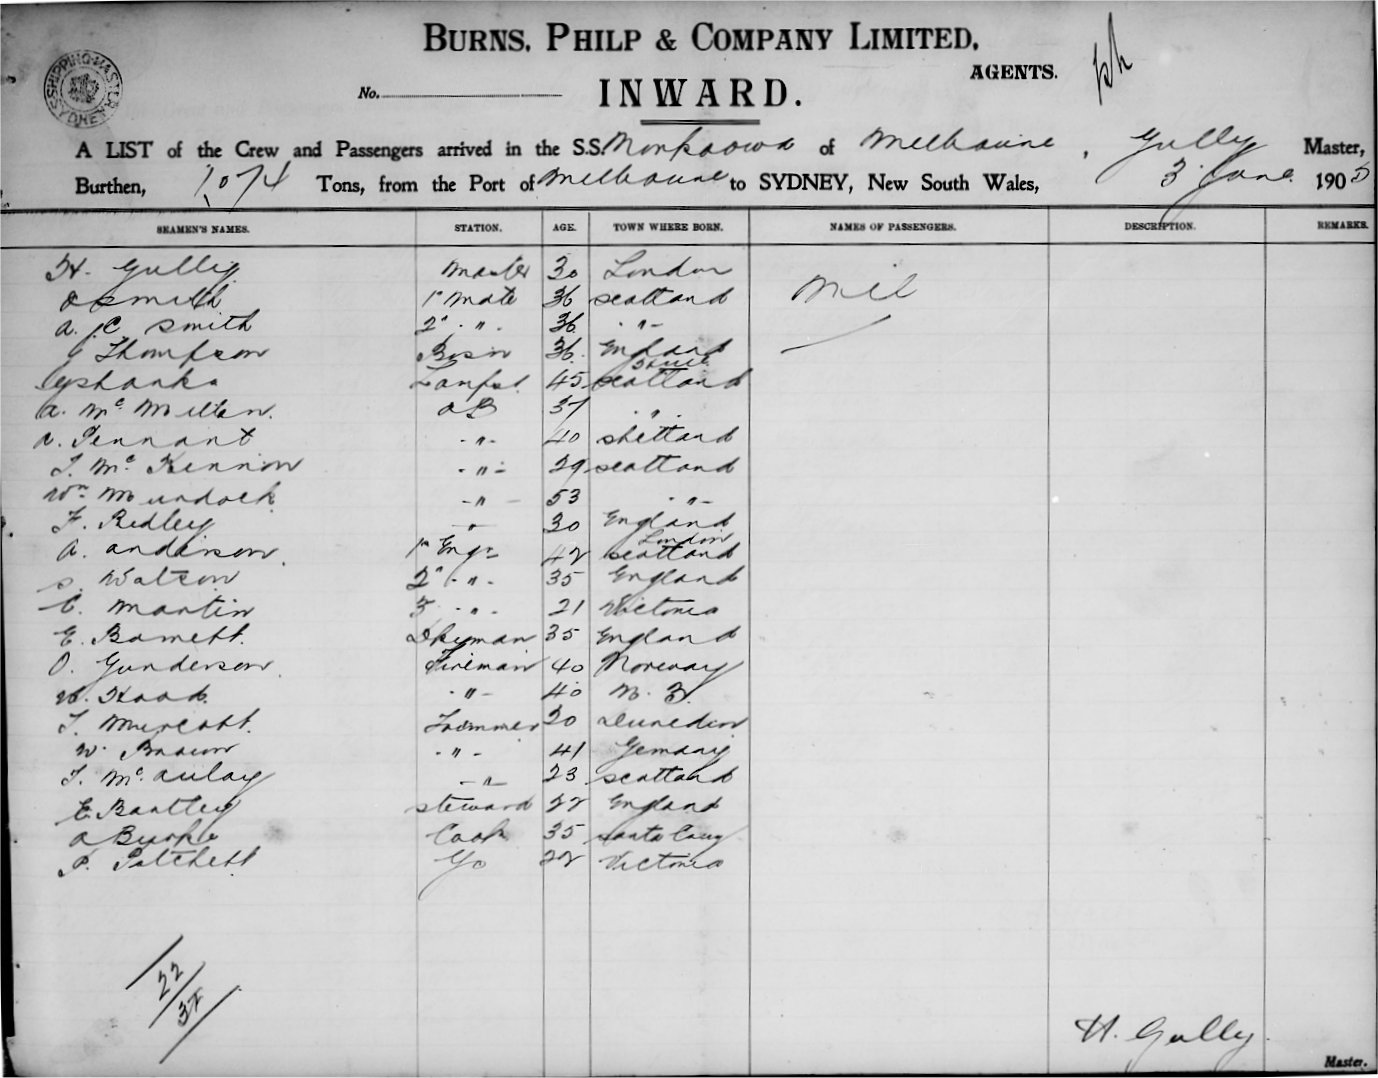 BURNS, PHILP & COMPANY LIMITED,
AGENTS.
SHIPPING MASTER SYDNEY
No.
INWARD.
A LIST of the Crew and Passengers arrived in the S.S. of Melbourne, Gully Master,
Burthen, 1074 Tons, from the Port of Melbourne to SYDNEY, New South Wales, 3 June 1905
SEAMEN'S NAMES. STATION. AGE. TOWN WHERE BORN. NAMES OF PASSENGERS. DESCRIPTION. REMARKS.
H. Gully Master 30 London
Smith 1st Mate 36 Scotland
A. C Smith 2nd " 36 "
G Thompson Bosn 36 England
Shanks Lamps 45 Scotland
A. Mc Millan. AB 37 "
Tennant " 40 Shetland
T. Mc Kinnon " 29 Scotland
Wm Murdock " 53 "
F. Ridley " 30 England
London
A. Anderson. 1st Engr 42 Scotland
S. Watson 2nd " 35 England
C. Martin 3 " 21 Victoria
E. Barnett. Dkeyman 35 England
O. Gunderson. Fireman 40 Norway
W. Hood. " 40 N. Z.
T. Murcott. Trimmer 20 Dunedin
W. Braun " 41 Gemany
T. Mc Aulay " 23 Scotland
E. Bantley Steward 22 England
Burke Cook 35 Santa Cruz
P. Patchett Victoria
22
37
H. Gully
Master.